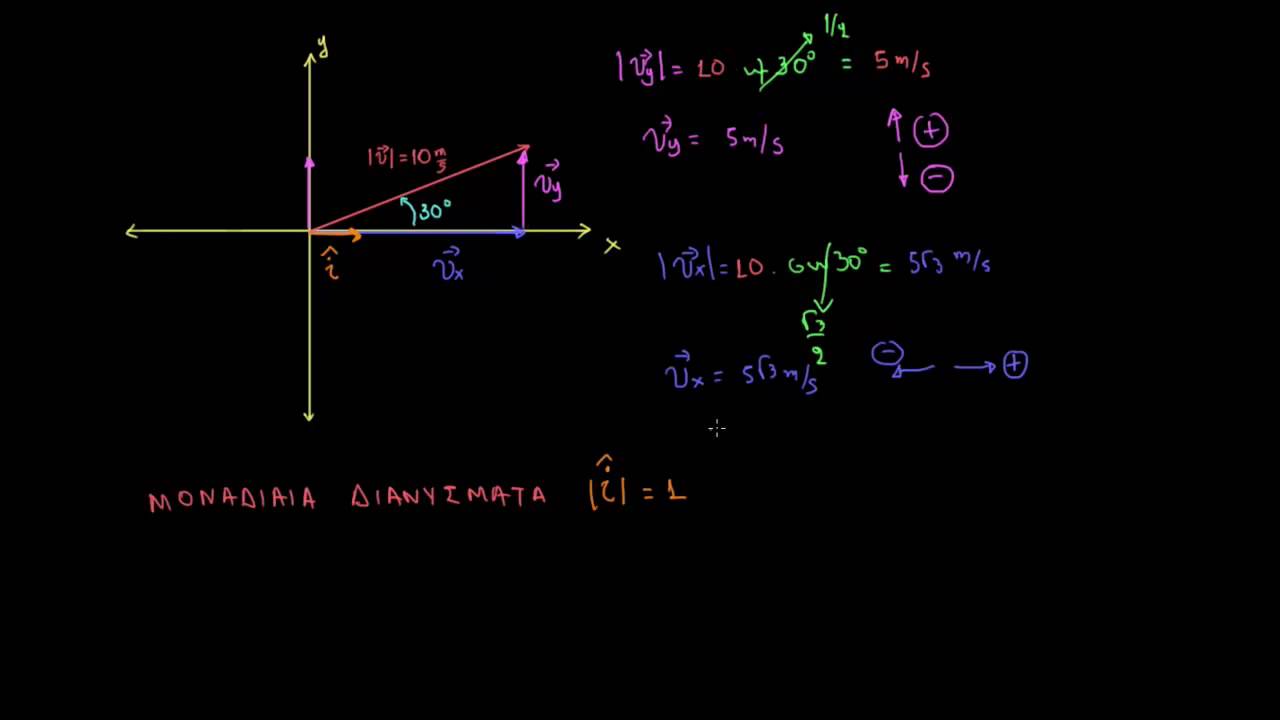 y
|v⃗| = 10 m/s
30°
v⃗y
x
î
v⃗x
1/2
|v⃗y| = 10 ημ30° = 5 m/s
v⃗y = 5 m/s
+
−
|v⃗x| = 10 · συν30° = 5√3 m/s
√3/2
v⃗x = 5√3 m/s
− +
ΜΟΝΑΔΙΑΙΑ ΔΙΑΝΥΣΜΑΤΑ |î| = 1